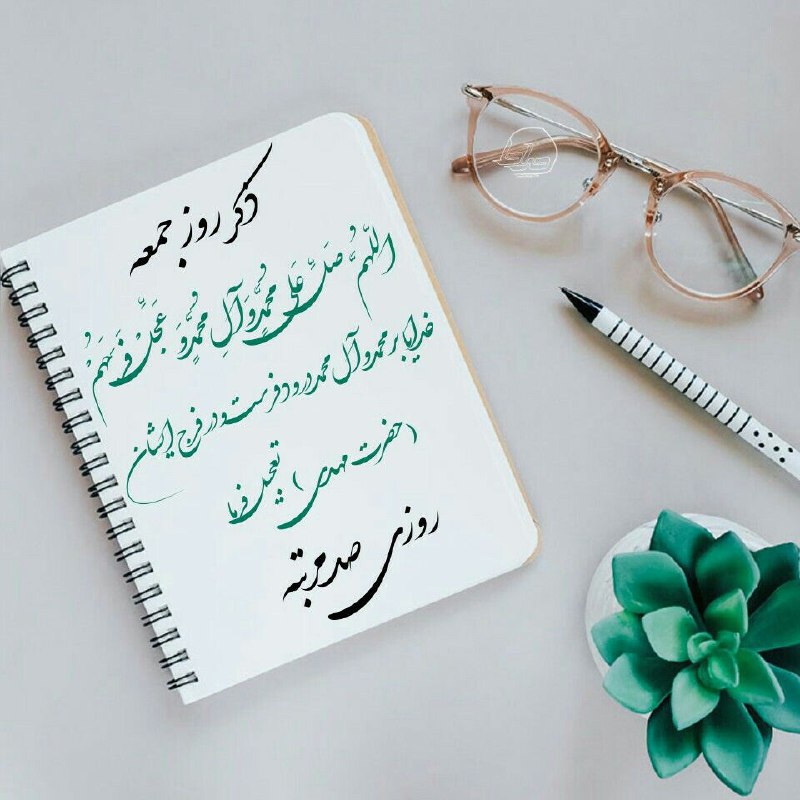 ذکر روز جمعه
اللّهُمَّ صَلِّ عَلی مُحَمَّدٍ وَ آلِ مُحَمَّدٍ وَ عَجِّلْ فَرَجَهُمْ
خدایا بر محمد و آل محمد درود فرست و در فرج ایشان
(حضرت مهدی) تعجیل فرما
روزی صد مرتبه